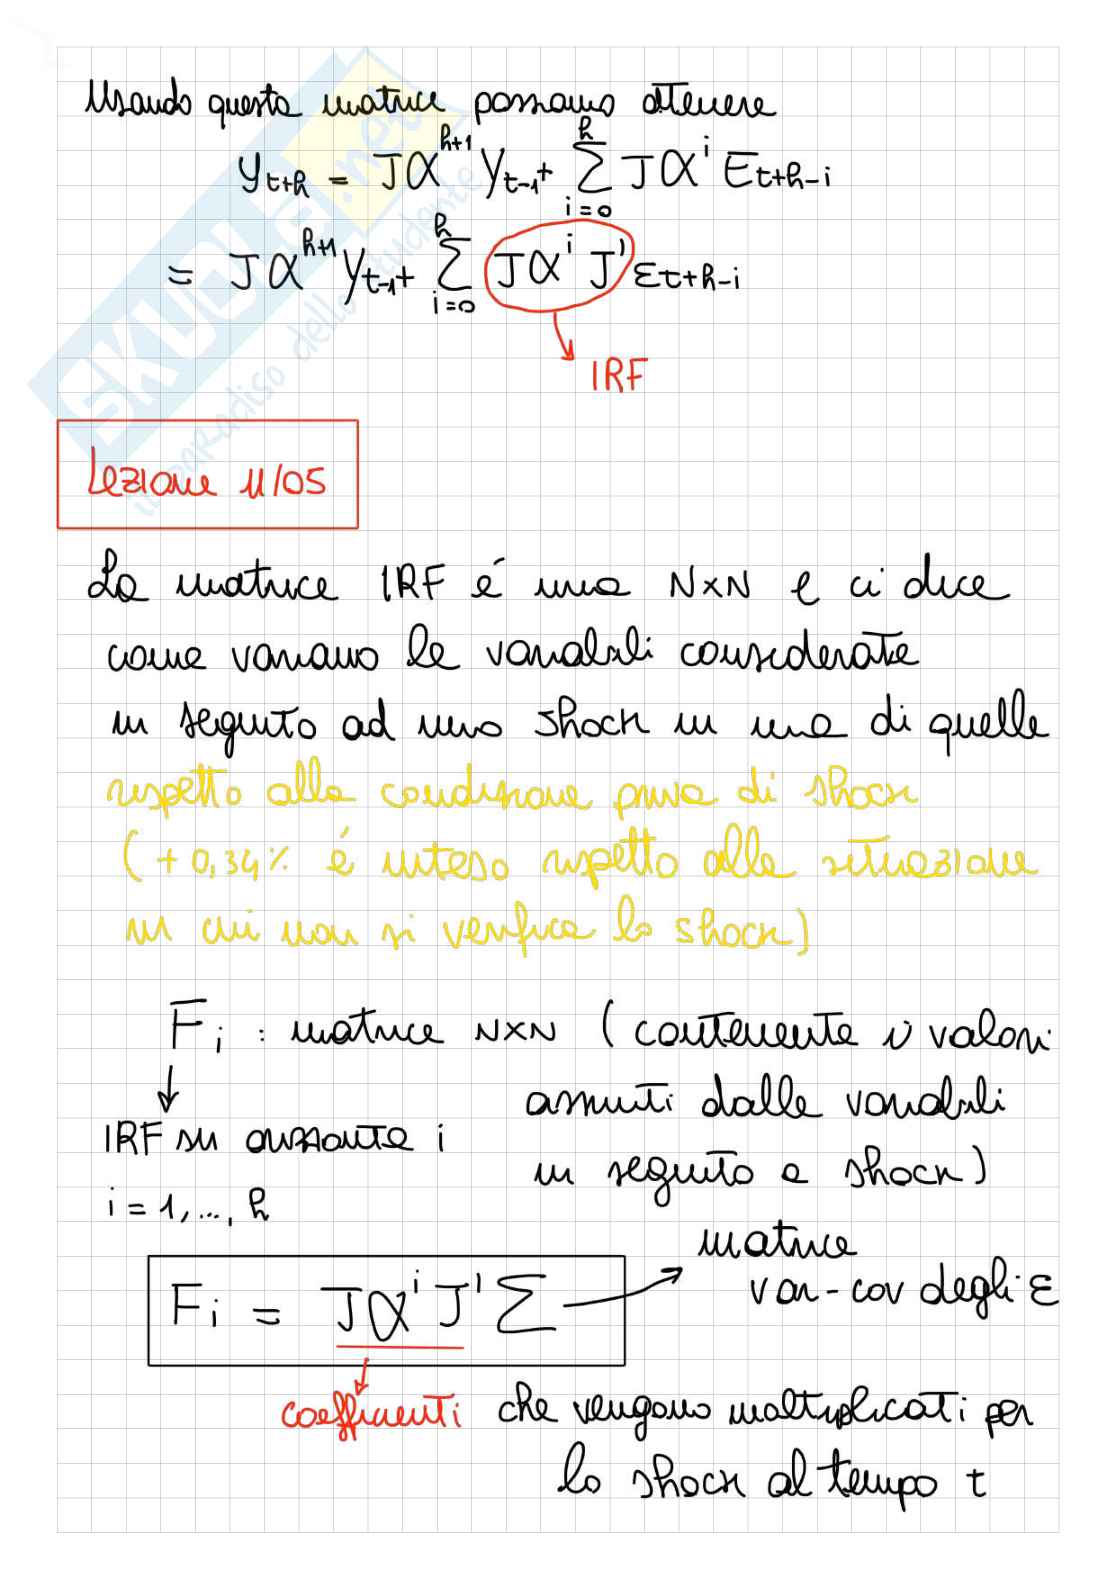 Usando questa matrice possiamo ottenere
y_{t+h} = Jα^{h+1} Y_{t-1} + \sum_{i=0}^{h} Jα^i E_{t+h-i}
= Jα^{h+1} Y_{t-1} + \sum_{i=0}^{h} Jα^i J' ε_{t+h-i}
IRF
Lezione 11/05
La matrice IRF é una N×N e ci dice
come variano le variabili considerate
in seguito ad uno shock in una di quelle
rispetto alla condizione priva di shock
(+0,34% é inteso rispetto alla situazione
in cui non si verifica lo shock)
F_i : matrice N×N (contenente i valori
assunti dalle variabili
in seguito a shock)
IRF su orizzonte i
i = 1, ..., h
F_i = Jα^i J' Σ
matrice
var-cov degli ε
coefficienti che vengono moltiplicati per
lo shock al tempo t
SKUOLA.net
il paradiso dello studente